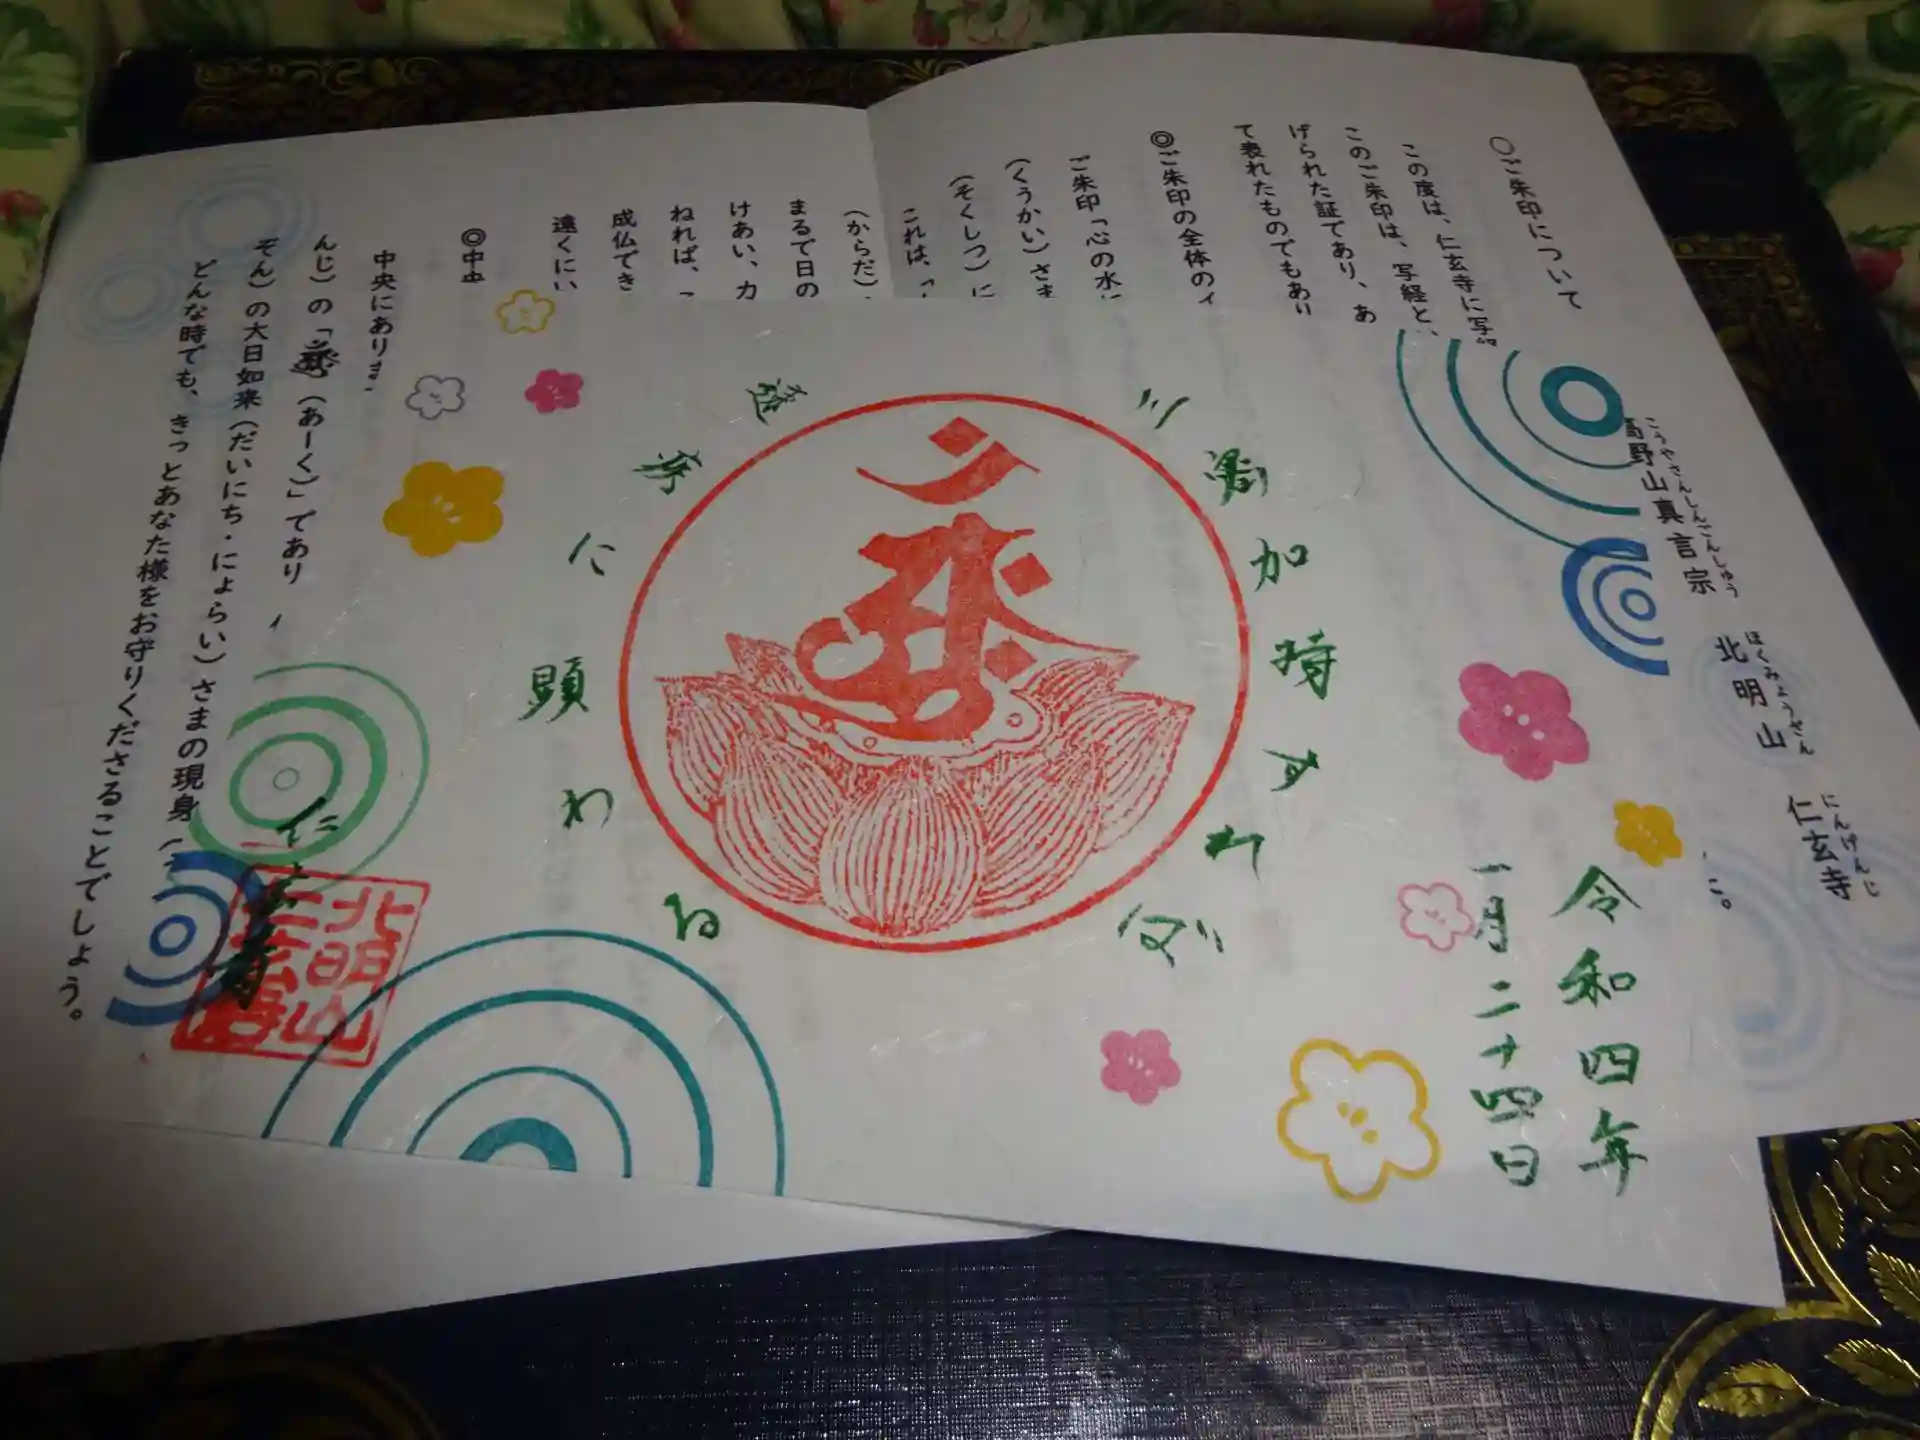 ○ご朱印について
この度は、仁玄寺に写
このご朱印は、写経と、
げられた証であり、あ
て表れたものでもあり
◎ご朱印の全体のイ
ご朱印「心の水に
(くうかい)さま
(そくしつ)に
これは、「
(からだ)、
まるで日の
けあい、力
ねれば、
成仏でき
遠くにい
◎中央
中央にありま
んじ)の「 (あーく)」であり
ぞん)の大日如来(だいにち・にょらい)さまの現身(
どんな時でも、きっとあなた様をお守りくださることでしょう。
こうやさんしんごんしゅう ほくみょうざん にんげんじ
高野山真言宗 北明山 仁玄寺
こ。
三密加持すれば
速疾に顕わる
令和四年
一月二十四日
仁玄寺
北明山
仁玄寺